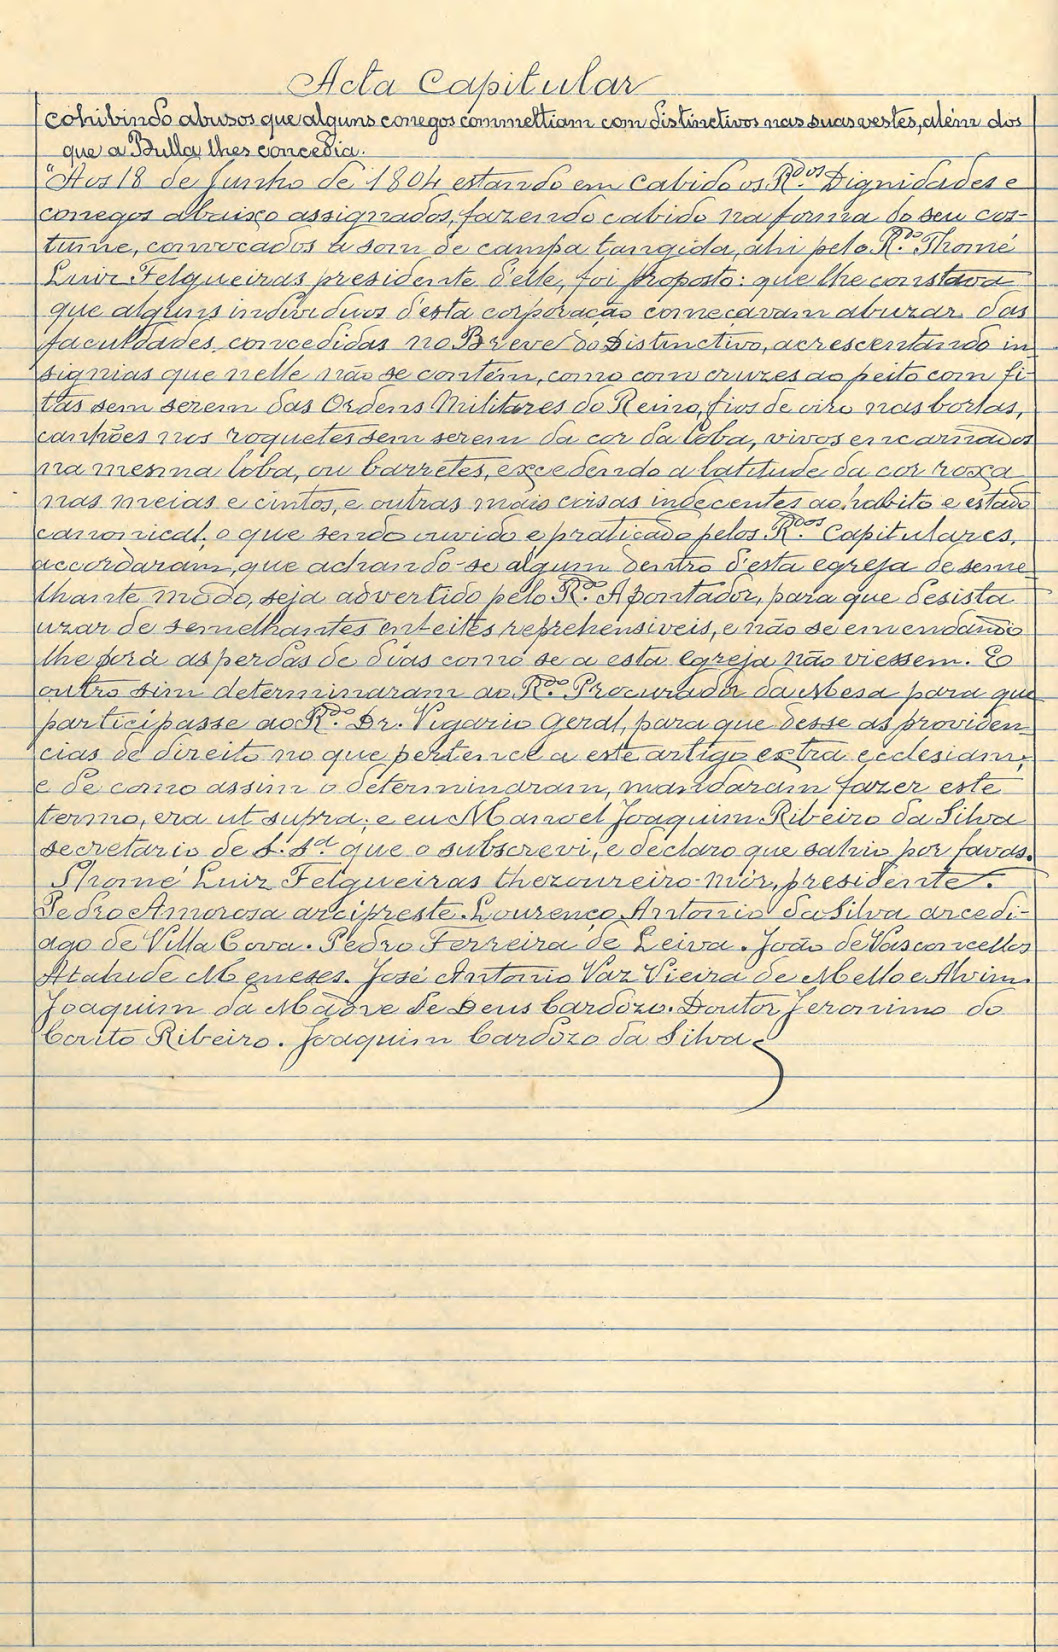 Acta Capitular
cohibindo abusos que alguns conegos commettiam com distinctivos nas suas vestes, além dos
que a Bulla lhes concedia.
"Aos 18 de Junho de 1804 estando em cabido os R.dos Dignidades e
conegos abaixo assignados, fazendo cabido na forma do seu cos-
tume, convocados a som de campa tangida, ahi pelo R.do Thomé
Luiz Felgueiras presidente d'elle, foi proposto: que lhe constava
que alguns individuos d'esta corporação começavam abuzar das
faculdades concedidas no Breve do Distinctivo, acrescentando in-
signias que nelle não se contém, como com cruzes ao peito com fi-
tas sem serem das Ordens Militares do Reino, fios de oiro nas borlas,
canhões nos roquetes sem serem da cor da loba, vivos encarnados
na mesma loba, ou barretes, excedendo a latitude da cor roxa
nas meias e cintos, e outras mais coisas indecentes ao habito e estado
canonical; o que sendo ouvido e praticado pelos R.dos Capitulares,
accordaram, que achando-se algum dentro d'esta egreja de seme-
lhante modo, seja advertido pelo R.do Apontador, para que desista
uzar de semelhantes enfeites reprehensiveis, e não se emendando
lhe porá as perdas de dias como se a esta egreja não viessem. E
outro sim determinaram ao R.do Procurador da Mesa para que
participasse ao R.do Dr. Vigario Geral, para que desse as providen-
cias de direito no que pertence a este artigo extra ecclesiam;
e de como assim o determinaram, mandaram fazer este
termo, era ut supra; e eu Manoel Joaquim Ribeiro da Silva
secretario de S. S.a que o subscrevi, e declaro que sahio por favas.
Thomé Luiz Felgueiras thezoureiro-mór, presidente.
Pedro Amorosa arcipreste. Lourenço Antonio da Silva arcedi-
ago de Villa Cova. Pedro Ferreira de Leiva. João de Vasconcellos
Atahide Meneses. José Antonio Vaz Vieira de Mello e Alvim.
Joaquim da Madre de Deus Cardozo. Doutor Jeronimo do
Couto Ribeiro. Joaquim Cardozo da Silva